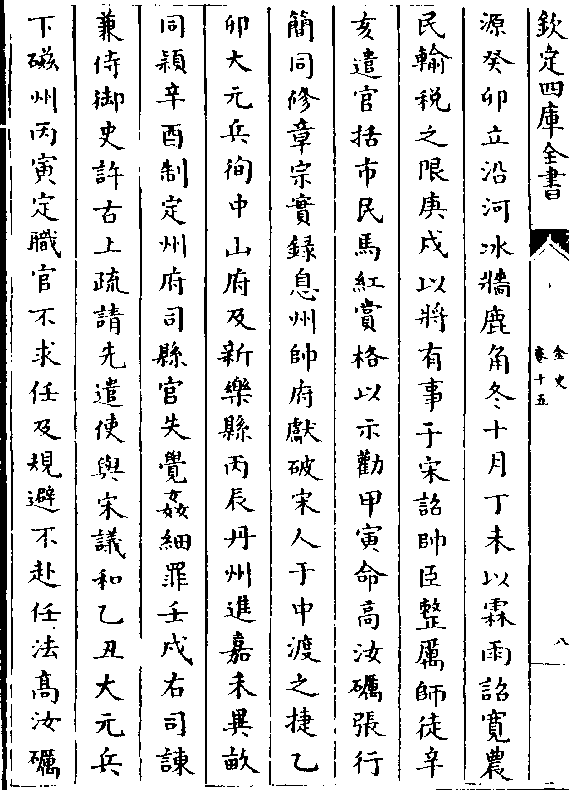 欽定四庫全書
金史
卷十五
八
源癸卯立沿河冰牆鹿角冬十月丁未以霖雨詔寬農
民輸稅之限庚戌以將有事于宋詔帥臣整厲師徒辛
亥遣官括市民馬紅賞格以示勸甲寅命高汝礪張行
簡同修章宗實錄息州帥府獻破宋人于中渡之捷乙
卯大元兵徇中山府及新樂縣丙辰丹州進嘉禾異畝
同穎辛酉制定州府司縣官失覺姦細罪壬戌右司諫
兼侍御史許古上疏請先遣使與宋議和乙丑大元兵
下磁州丙寅定職官不求任及規避不赴任法高汝礪